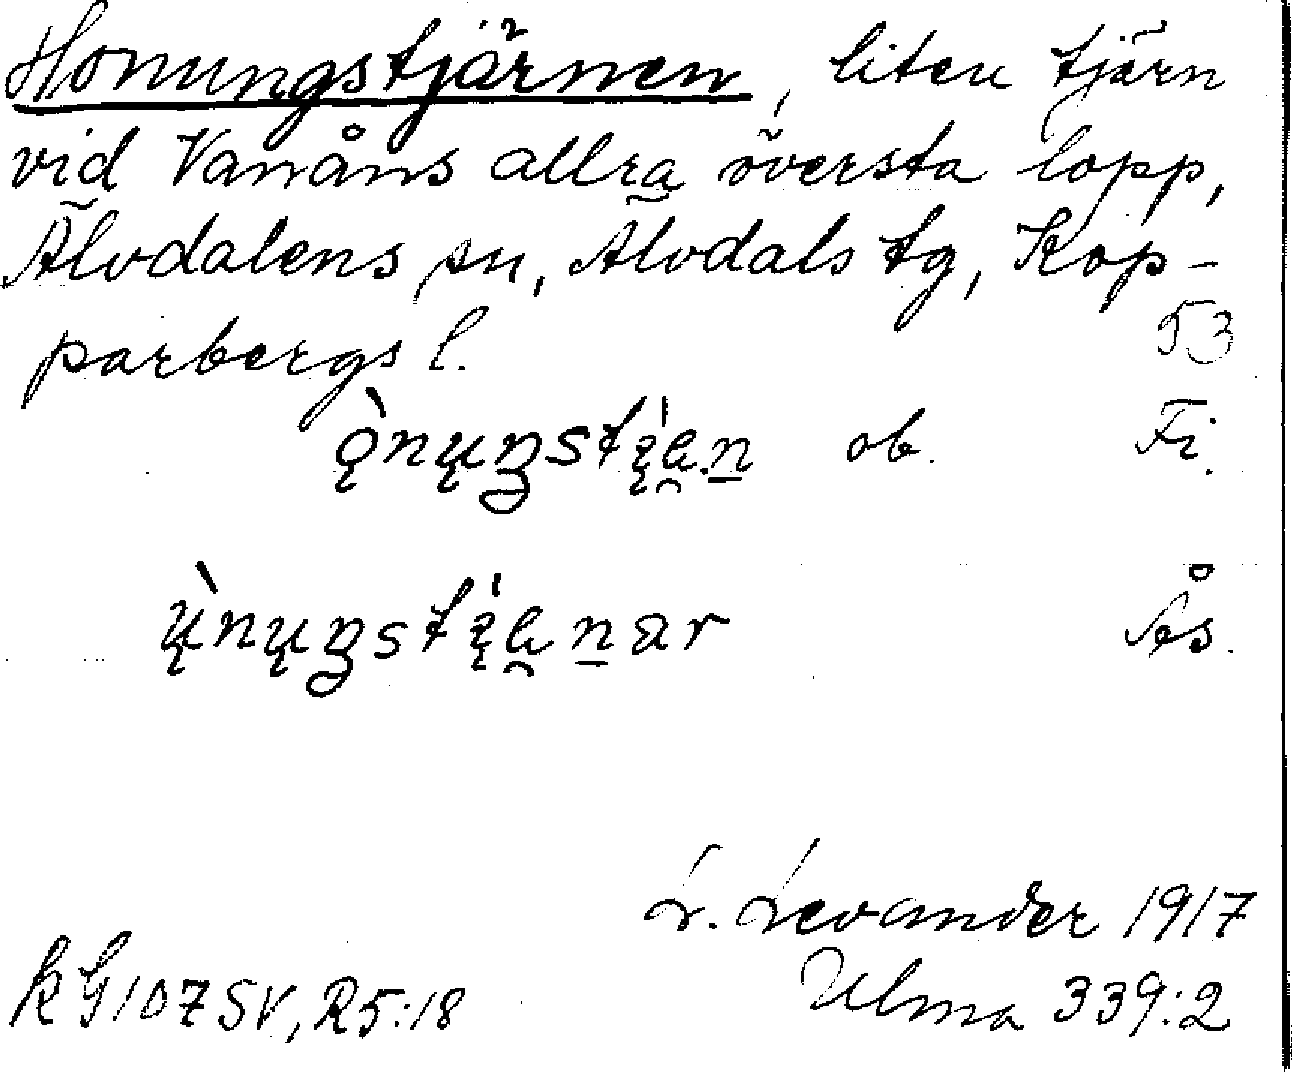 Honungstjärnen, liten tjärn
vid Vanåns allra översta lopp,
Älvdalens sn, Älvdals tg, Kop-
parbergs l. 53
ǫ̀nųŋstįe̯n ob. Fi.
ų̀nųŋstįe̯nar Ås.
L. Levander 1917
kG107SV, R5:18 Ulma 339:2